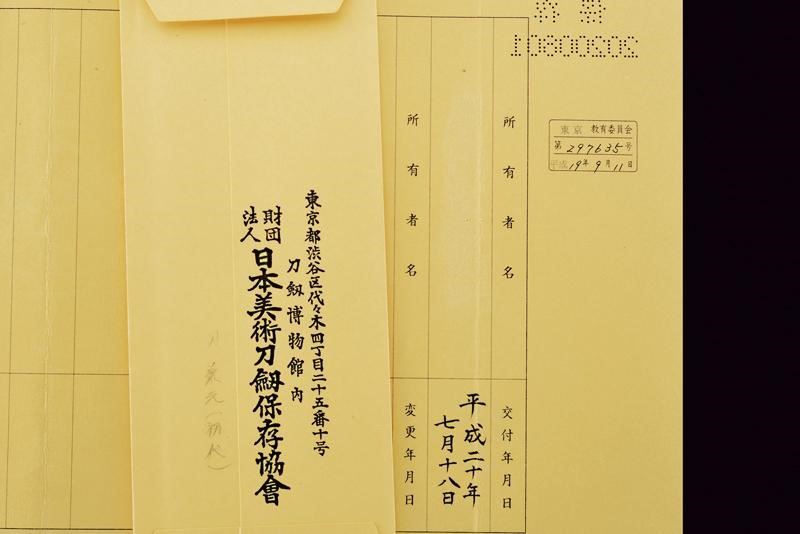 東京 教育委員会
第297635号
平成19年9月11日
所有者名
交付年月日
平成二十年
七月十八日
所有者名
変更年月日
東京都渋谷区代々木四丁目二十五番十号
刀劔博物館内
財団法人日本美術刀劔保存協會